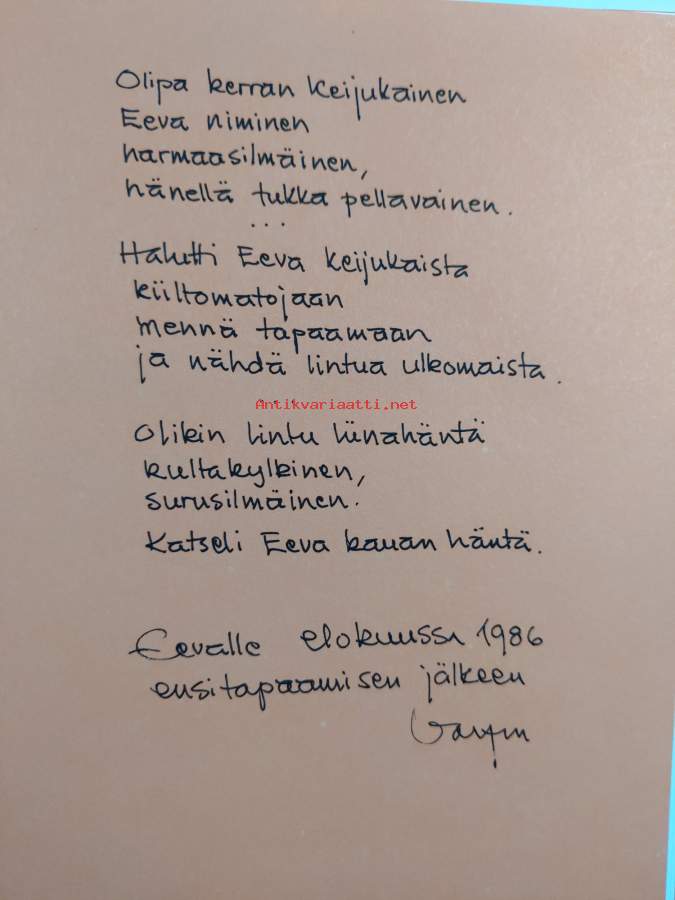 Olipa kerran keijukainen
Eeva niminen
harmaasilmäinen,
hänellä tukka pellavainen.
...
Halutti Eeva keijukaista
kiiltomatojaan
mennä tapaamaan
ja nähdä lintua ulkomaista.
Antikvariaatti.net
Olikin lintu liinahäntä
kultakylkinen,
surusilmäinen.
Katseli Eeva kauan häntä.
Eevalle elokuussa 1986
ensitapaamisen jälkeen